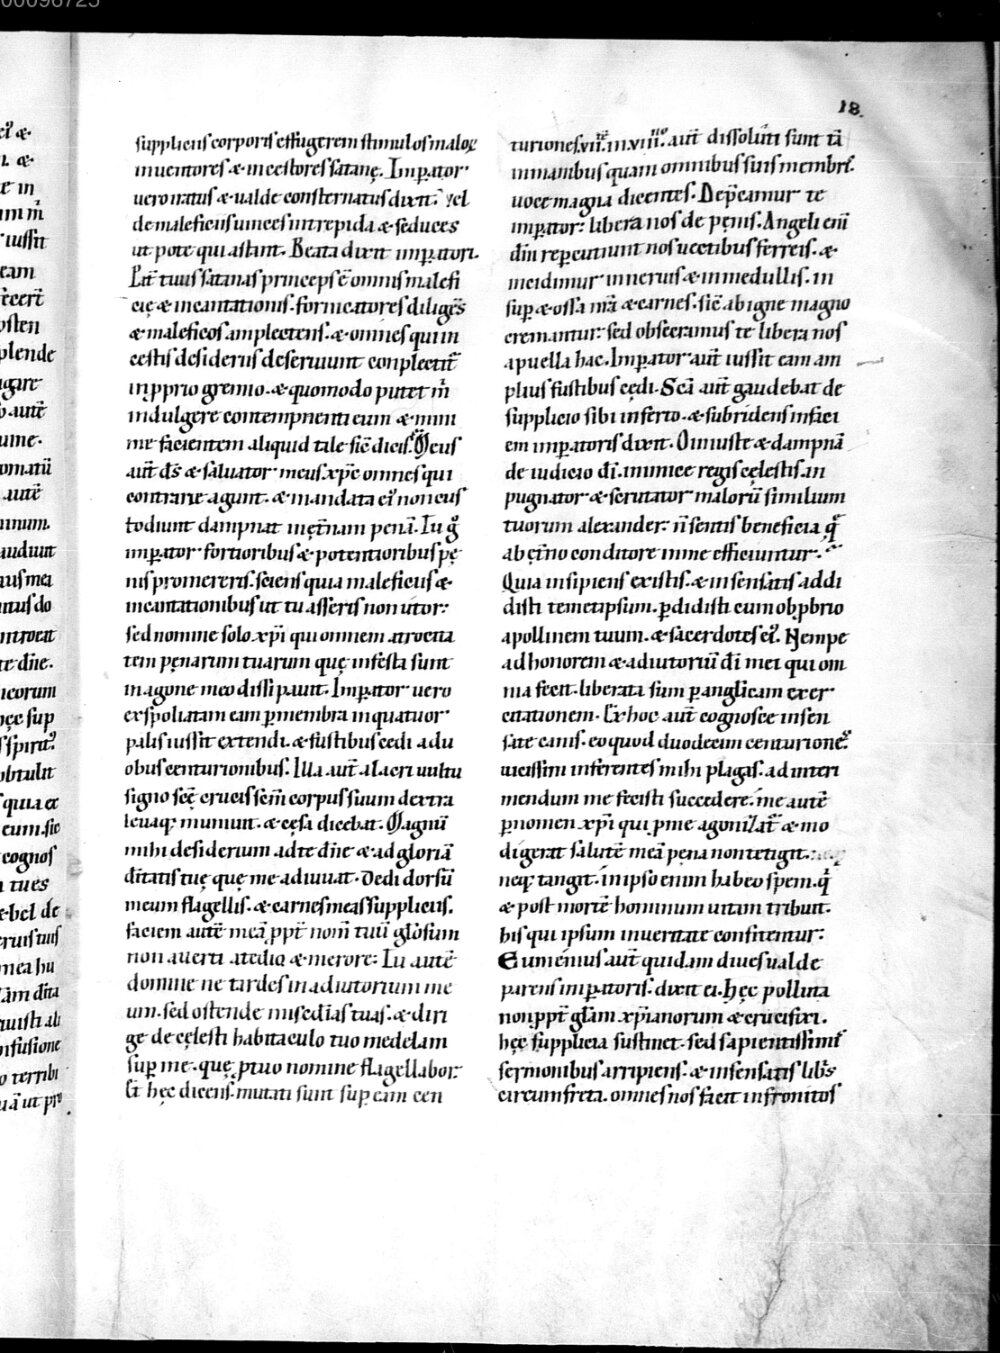 00098725
18.
suppliciis corporis effugerem stimulos maloꝝ
inuentores & incestores satanę. Imꝑator
uero iratus & ualde consternatus dixit. Vel
de maleficiis uinces intrepida & seduces
ut pote qui astant. Beata dixit imꝑatori.
Pat̄ tuus satanas princeps ē omnis malefi
cię & incantationis. fornicatores diligēs
& maleficos amplectens. & omnes qui in
cestis desideriis deseruiunt conplectit᷑
in ꝓprio gremio. & quomodo putet m̄
indulgere contempnenti eum & mini
me facientem aliquid tale sic̄ dicis. Deus
aut̄ ds̄ & saluator meus xp̄c omnes qui
contrarie agunt. & mandata ei᷒ non cus
todiunt dampnat in ęt̄nam penā. Tu g̊
imꝑator fortioribus & potentioribus pę
nis promereris. sciens quia maleficiis &
incantationibus ut tu asseris non utor:
sed nomine solo xp̄i qui omnem atrocita
tem pęnarum tuarum quę infesta sunt
in agone meo dissipauit. Imꝑator uero
exspoliatam eam ꝑ membra in quatuor
palis iussit extendi. & fustibus cedi a du
obus centurionibus. Illa aut̄ alacri uultu
signo scę̄ crucis sem̄ corpus suum dextra
leuaq; muniuit. & cęsa dicebat. Magnū
mihi desiderium ad te dn̄e & ad gloriā
diūtatis tuę quę me adiuuat. Dedi dorsū
meum flagellis. & carnes meas suppliciis.
faciem autē meā ꝓpt̄ nom̄ tuū gl̄osum
non auerti a tedio & merore: Tu autē
domine ne tardes in adiutorium me
um. sed ostende misc̄dias tuas. & diri
ge de cęlesti habitaculo tuo medelam
suꝑ me. quę ꝓ tuo nomine flagellabor:
Et hęc dicens. mutati sunt suꝑ eam cen
turiones. vii.te in viii.uo. aut̄ dissoluti sunt tā
in manibus quam omnibus suis membris.
uoce magna dicentes. Dep̄camur te
imꝑator: libera nos de pęnis. Angeli eni̅
dn̄i repercutiunt nos uectibus ferreis. &
incidimur in neruis & in medullis. in
suꝑ & ossa nr̄a & carnes. sic̄ ab igne magno
cremantur: sed obsecramus te libera nos
a puella hac. Imꝑator aut̄ iussit eam am
plius fustibus cędi. Scā aut̄ gaudebat de
supplicio sibi inferto. & subridens in faci
em imꝑatoris dixit. O iniuste & dampnā
de iudicio dī. inimice regis cęlestis. in
pugnator & scrutator malorū similium
tuorum alexander: n̄ sentis beneficia q̄
ab ęt̄no conditore in me efficiuntur.
Quia insipiens existis. & insensatis addi
disti temetipsum. ꝑdidisti eum obꝓbrio
apollinem tuum. & sacerdotes ei᷒. Nempe
ad honorem & adiutoriū dī mei qui om
nia fecit. liberata sum ꝑ anglicam exer
citationem. Ex hoc aut̄ cognosce insen
sate canis. eo quod duodecim centurione᷒
uicissim inferentes mihi plagas. ad interi
mendum me fecisti succedere. me autē
ꝑ nomen xp̄i qui ꝓ me agonizat̄ & mo
digerat salutē meā pena non tetigit.
neq; tangit. in ipso enim habeo spem. q̄
& post mortē hominum uitam tribuit.
his qui ipsum in ueritate confitentur:
Eumenius aut̄ quidam diues ualde
parens imꝑatoris. dixit ei. Hęc polluta
non ꝓpt̄ gl̄am xp̄ianorum & crucifixi.
hęc supplicia sustinet. sed sapientissimis
sermonibus arripiens. & insensatis libris
circumfreta. omnes nos facit infronitos